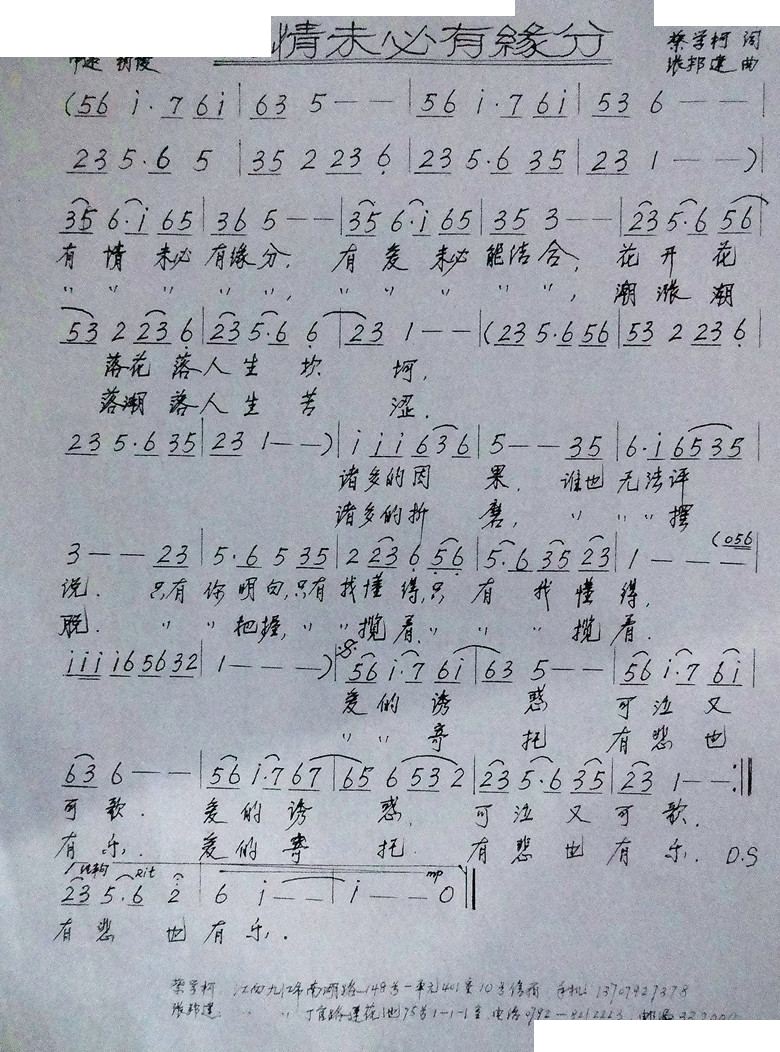 情未必有緣分
蔡学柯 词
中速 张邦建 曲
(56 i·7 6i | 63 5 — — | 56 i·7 6i | 53 6 — — |
23 5·6 5 | 35 2 23 6̣ | 23 5·6 35 | 23 1 — — )|
35 6·i 65 | 36 5 — — | 35 6·i 65 | 35 3 — — | 23 5·6 56 |
有情 未必 有缘分, 有爱 未必 能结合, 花开花
〃 〃 〃 〃 〃, 〃 〃 〃 〃 〃, 潮涨潮
53 2 23 6̣ | 23 5·6 6̣ | 23 1 — — |(23 5·6 56 | 53 2 23 6̣ |
落花 落人生 坎 坷,
落潮 落人生 苦 涩.
23 5·6 35 | 23 1 — — )| i i i 6 3 6 | 5 — — 35 | 6·i 6535 |
诸多的因 果, 谁也 无法评
诸多的折 磨, 〃 〃 〃 摆
3 — — 23 | 5·6 5 35 | 2 23 6̣ 5̣6̣ | 5̣·6̣ 35 23 | 1 — — — (056
说. 只有 你明白,只有 我懂得,只 有 我 懂 得,
脱. 〃 〃 把握, 〃 〃 揽着, 〃 〃 〃 揽着.
iiii 165632 | 1 — — — )| 56 i·7 6i | 63 5 — — | 56 i·7 6i |
爱的 诱 惑 可泣又
〃 〃 寄 托 有悲也
63 6 — — | 56 i·7 67 | 65 6 532 | 23 5·6 35 | 23 1 — — :||
可歌. 爱的诱 惑, 可泣又可歌.
有乐. 爱的寄 托. 有悲也有乐. D.S
结构 Rit mp
23 5·6 2̇ | 6 i — — | i — — 0 ||
有悲 也有乐.
蔡学柯 江西九江市南湖路149号一单元401室10号信箱 手机: 13707927378
张邦建 〃 〃 莲花池75号1-1-1室 电话0792